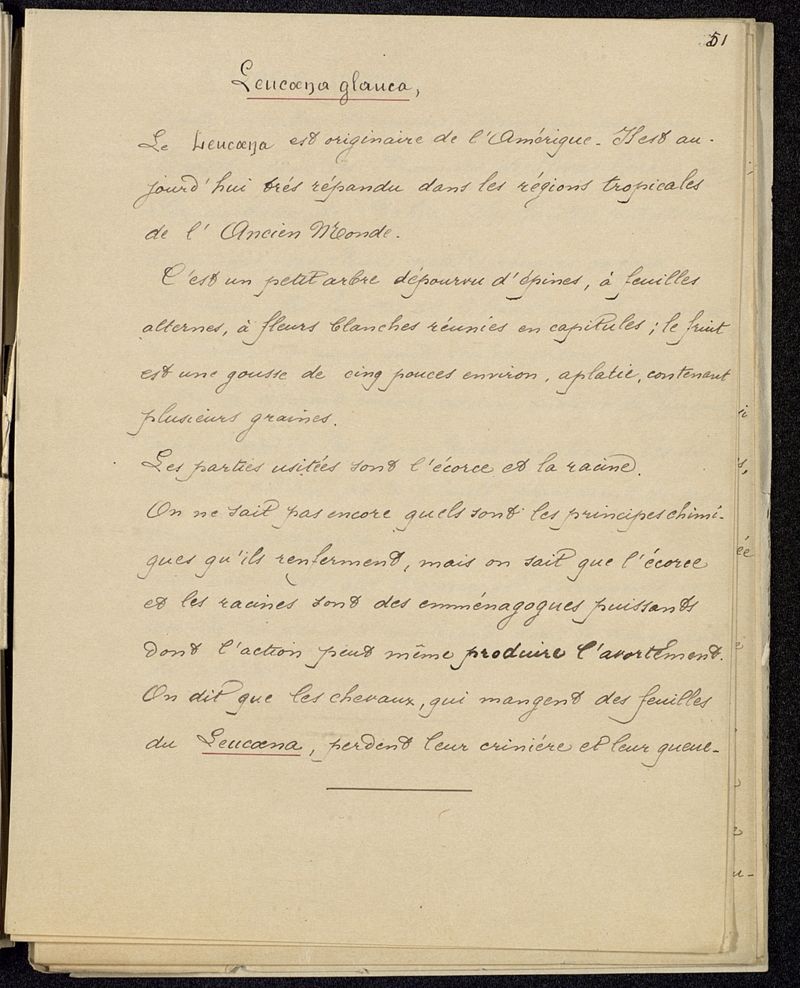 51
Leucæna glauca,
Le Leucæna est originaire de l'Amérique - Il est au-
jourd'hui trés répandu dans les régions tropicales
de l' Ancien Monde.
C'est un petit arbre dépourvu d'épines, à feuilles
alternes, à fleurs blanches réunies en capitules ; le fruit
est une gousse de cinq pouces environ, aplatie, contenant
plusieurs graines.
Les parties usitées sont l'écorce et la racine.
On ne sait pas encore quels sont les principes chimi-
ques qu'ils renferment, mais on sait que l'écorce
et les racines sont des emménagogues puissants
dont l'action peut même produire l'avortement.
On dit que les chevaux, qui mangent des feuilles
du Leucæna, perdent leur criniére et leur queue-